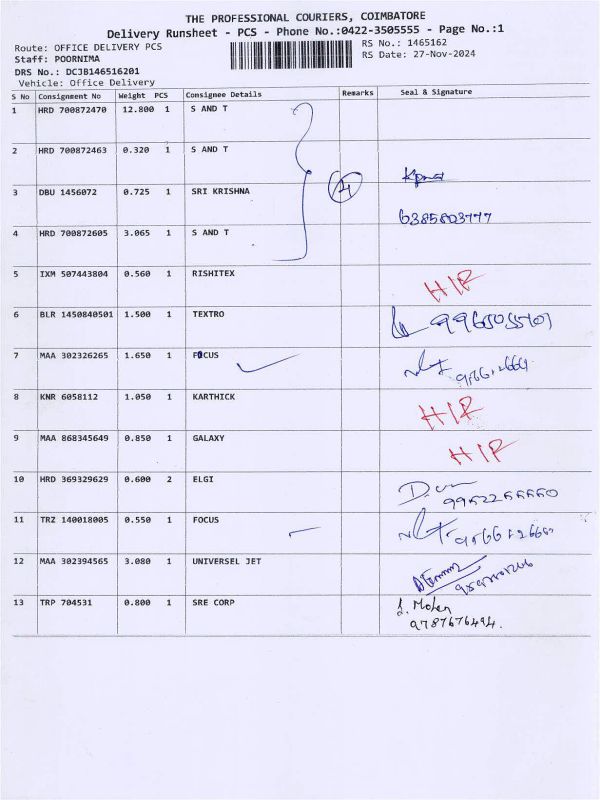 THE PROFESSIONAL COURIERS, COIMBATORE
Delivery Runsheet - PCS - Phone No.:0422-3505555 - Page No.:1
Route: OFFICE DELIVERY PCS
RS No.: 1465162
Staff: POORNIMA
RS Date: 27-Nov-2024
DRS No.: DCJB146516201
Vehicle: Office Delivery
S No Consignment No Weight PCS Consignee Details Remarks Seal & Signature
1 HRD 700872470 12.800 1 S AND T
2 HRD 700872463 0.320 1 S AND T
3 DBU 1456072 0.725 1 SRI KRISHNA
6385803777
4 HRD 700872605 3.065 1 S AND T
5 IXM 507443804 0.560 1 RISHITEX HIR
6 BLR 1450840501 1.500 1 TEXTRO
7 MAA 302326265 1.650 1 FOCUS
8 KNR 6058112 1.050 1 KARTHICK HIR
9 MAA 868345649 0.850 1 GALAXY HIR
10 HRD 369329629 0.600 2 ELGI
11 TRZ 140018005 0.550 1 FOCUS
12 MAA 302394565 3.080 1 UNIVERSEL JET
13 TRP 704531 0.800 1 SRE CORP
9787676494.